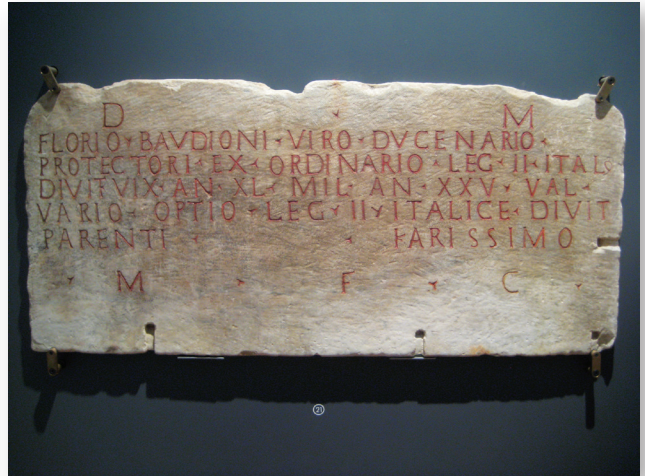 D M
FLORIO BAVDIONI VIRO DVCENARIO
PROTECTORI EX ORDINARIO LEG II ITAL
DIVIT VIX AN XL MIL AN XXV VAL
VARIO OPTIO LEG II ITALICE DIVIT
PARENTI FARISSIMO
M F C
21